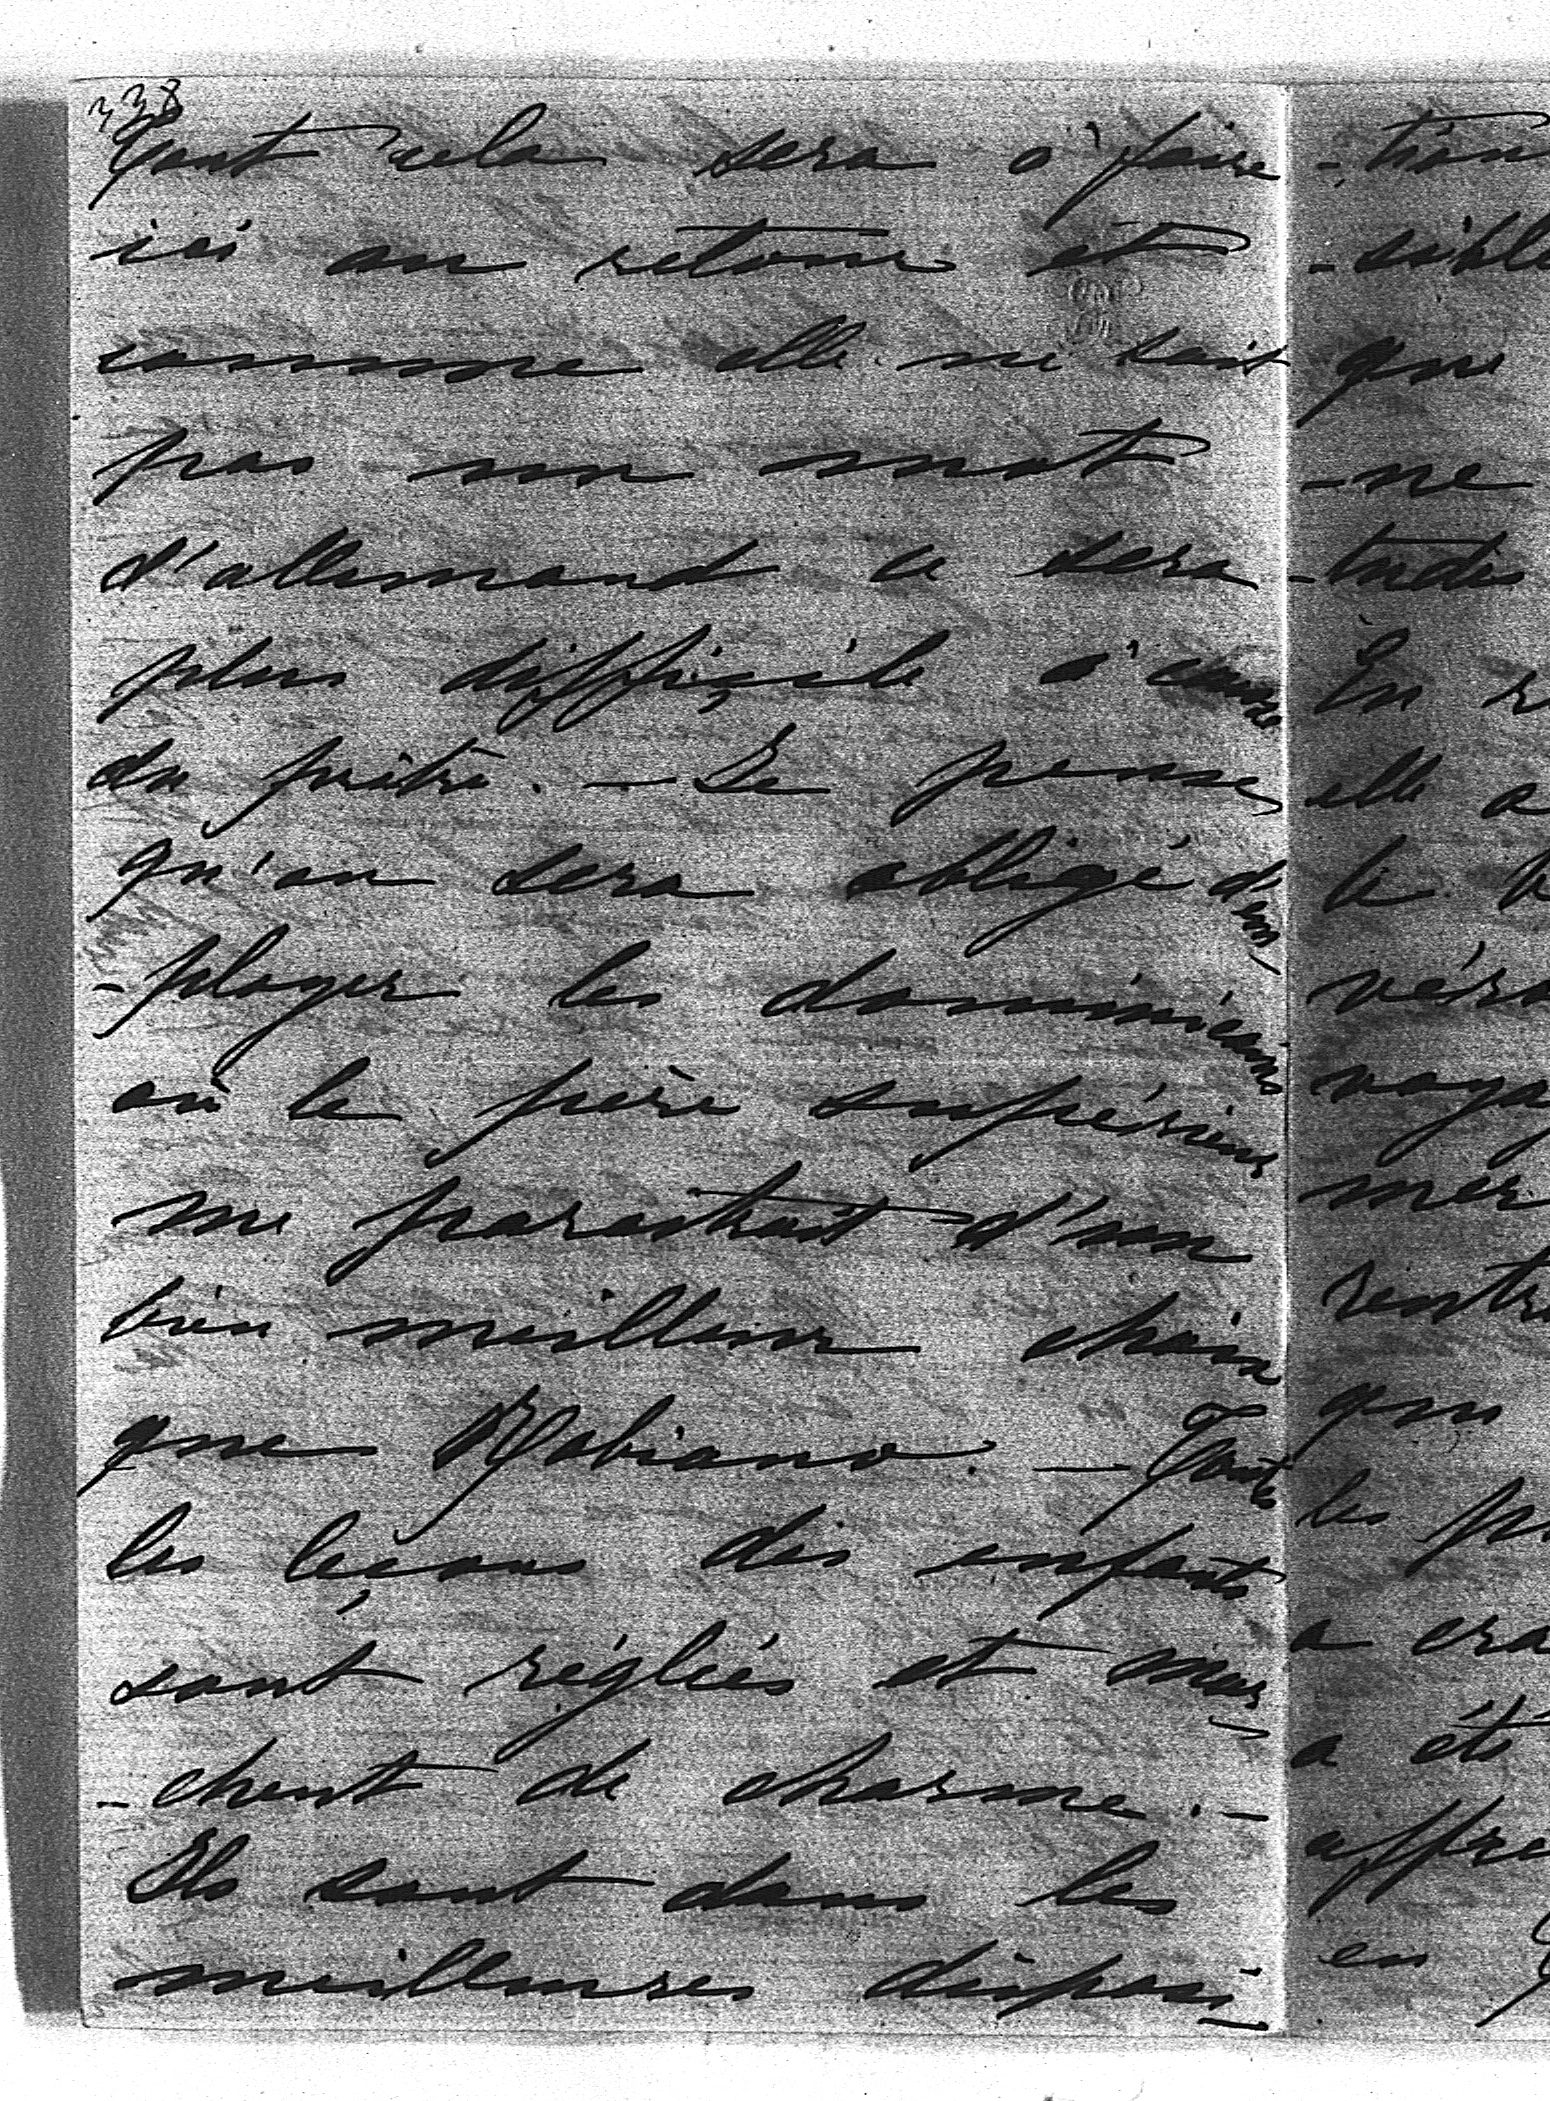 338
Tout cela sera à faire
ici au retour et
comme elle ne sait
pas un mot
d'allemand ce sera
plus difficile à cause
du prêtre. — Je pense
qu'on sera obligé d'em-
-ployer les dominicains
où le père supérieur
me paraitrait d'un
bien meilleur choix
que Robiano. — Toutes
les leçons des enfants
sont réglées et mar-
-chent de charme. —
Ils sont dans les
meilleures disposi-
-tion
-sible
que
-ne
-tudes
En
elle a
le
mer
rentr
qui
les
a
a été
affre
en